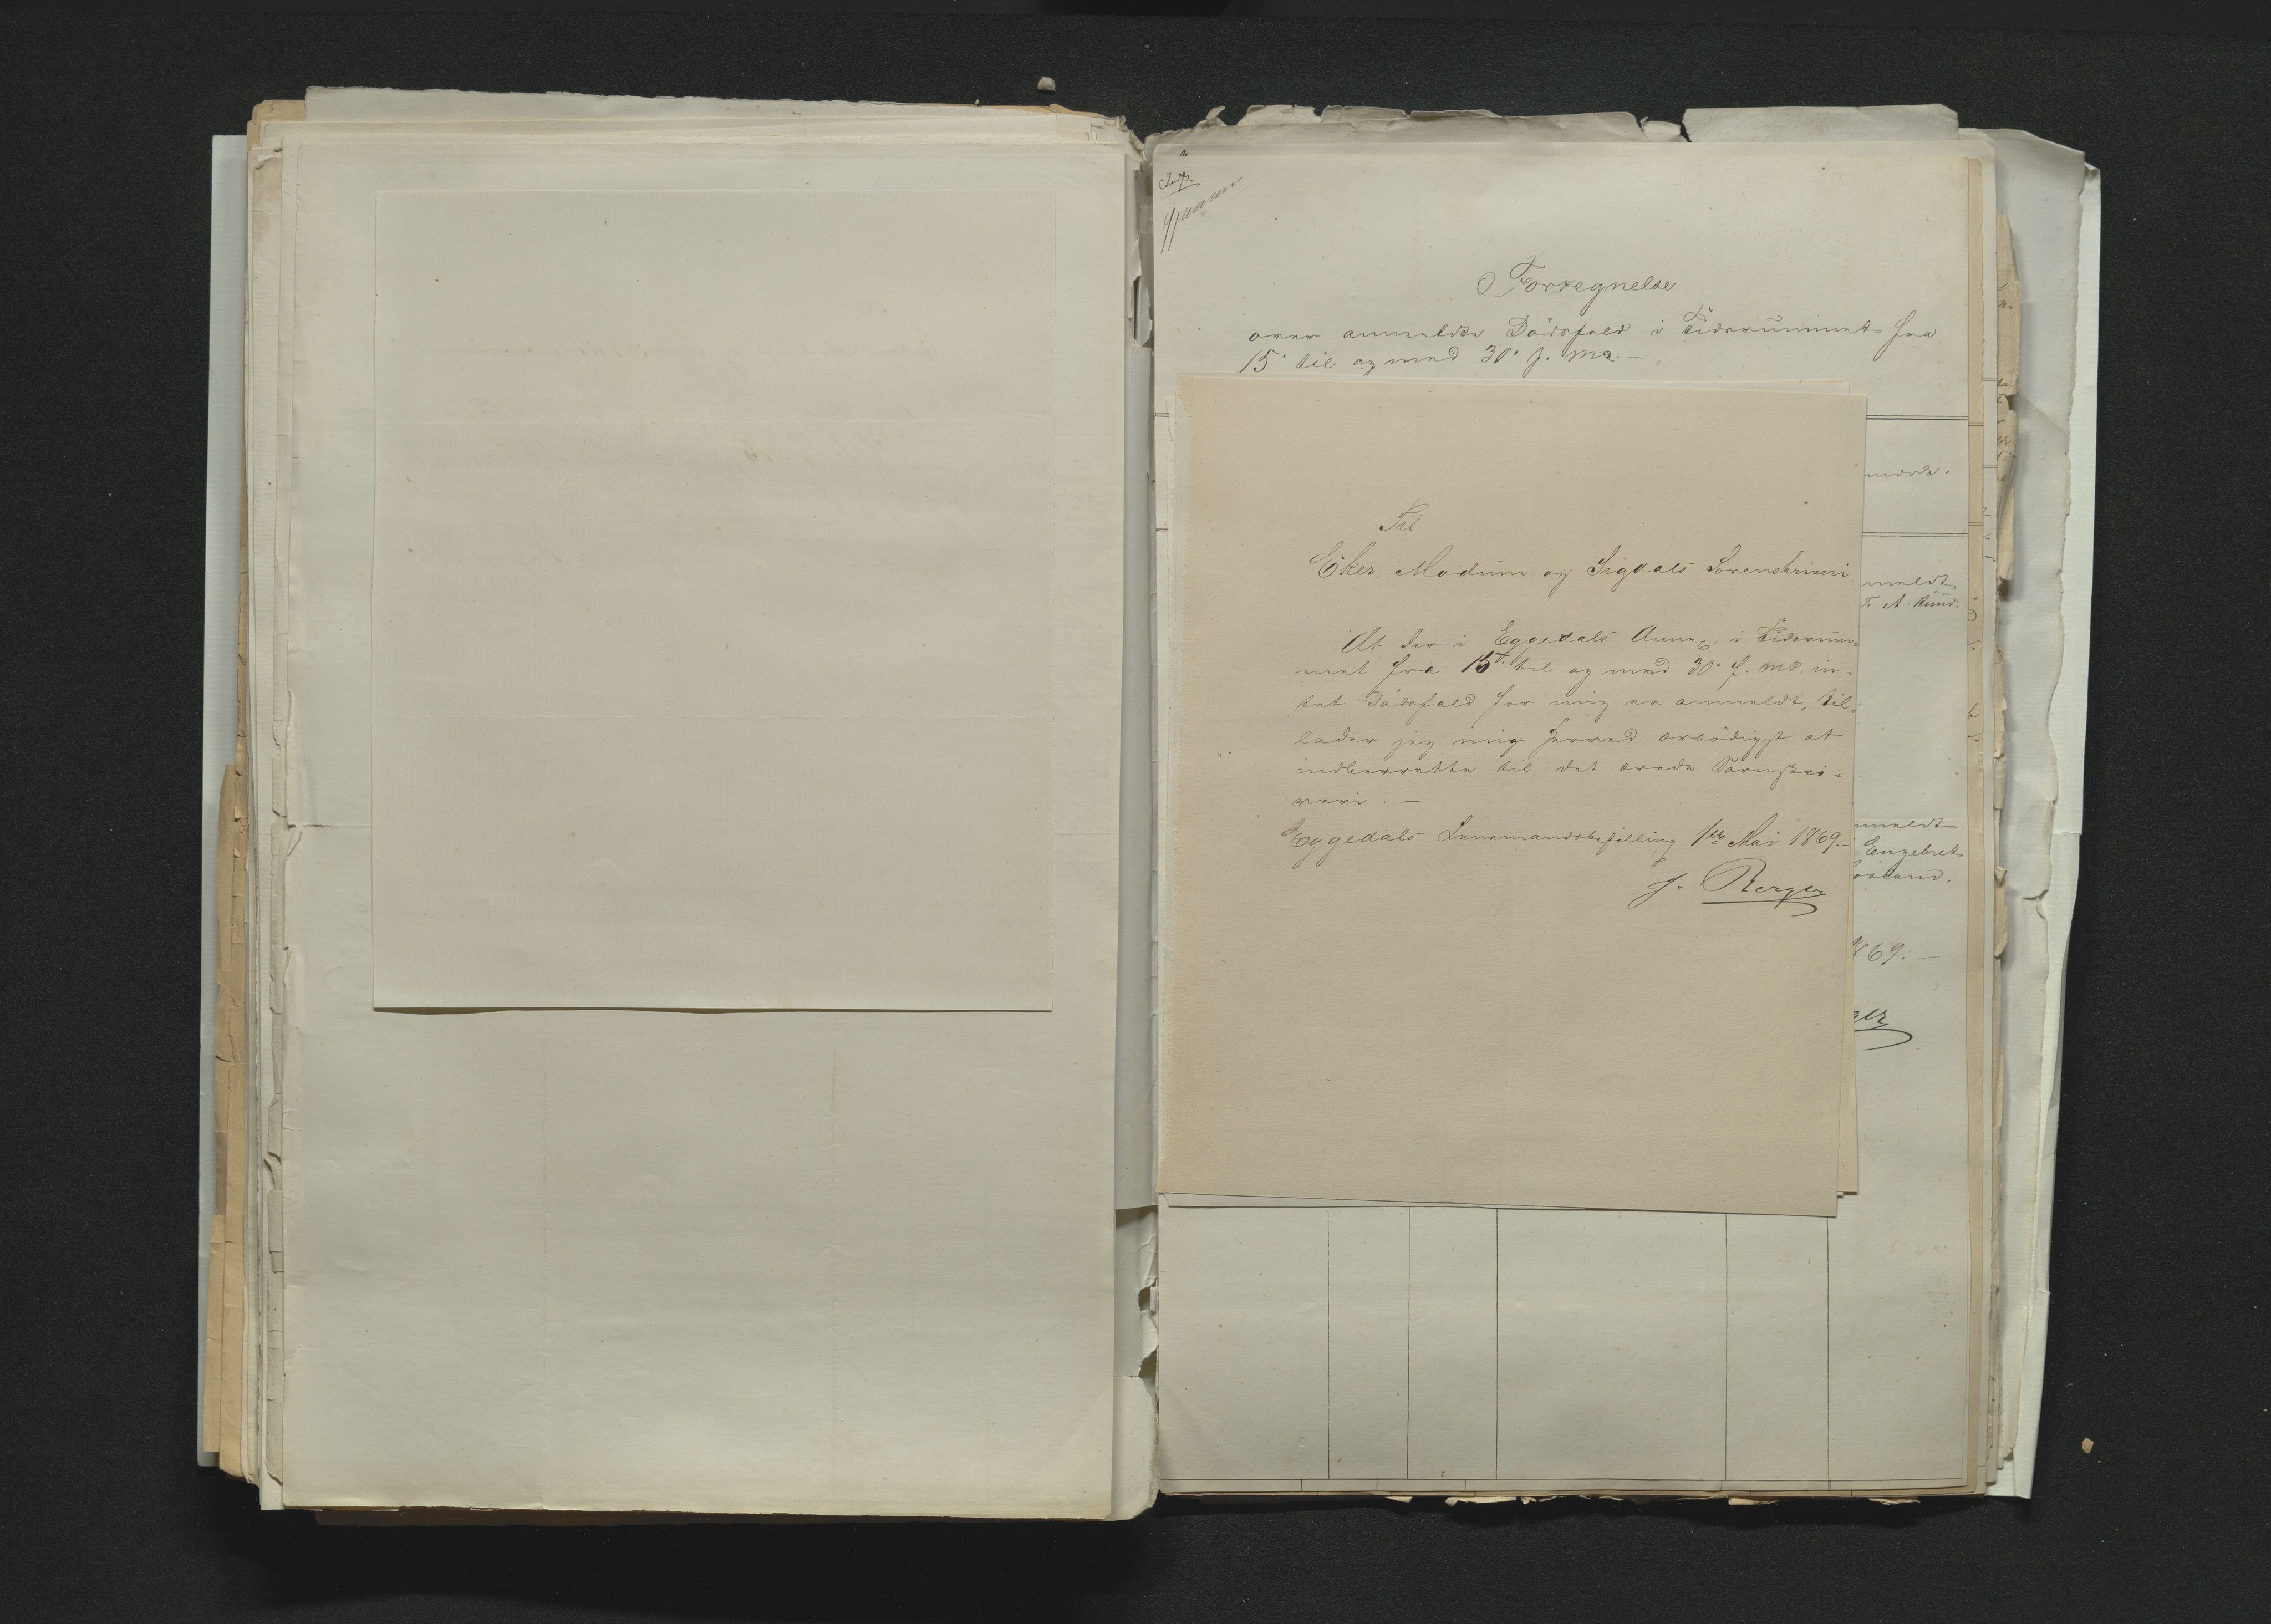 Fortegnelse
over anmeldte Dödsfald i Tidsrummet fra
15' til og med 30' f. Md. —
Til
Eker, Modum og Sigdals Sorenskriveri.
At der i Eggedals Annex i Tidsrum-
met fra 15' til og med 30' f. Md. in-
tet Dödsfald for mig er anmeldt, til-
lader jeg mig herved ærbödigst at
indberette til det ærede Sorenskri-
veri. —
Eggedals Lensmandsbestilling 1ste Mai 1869. —
J. Berger
mærk.
meldt
A. Ruud.
meldt
Engebret
869. —